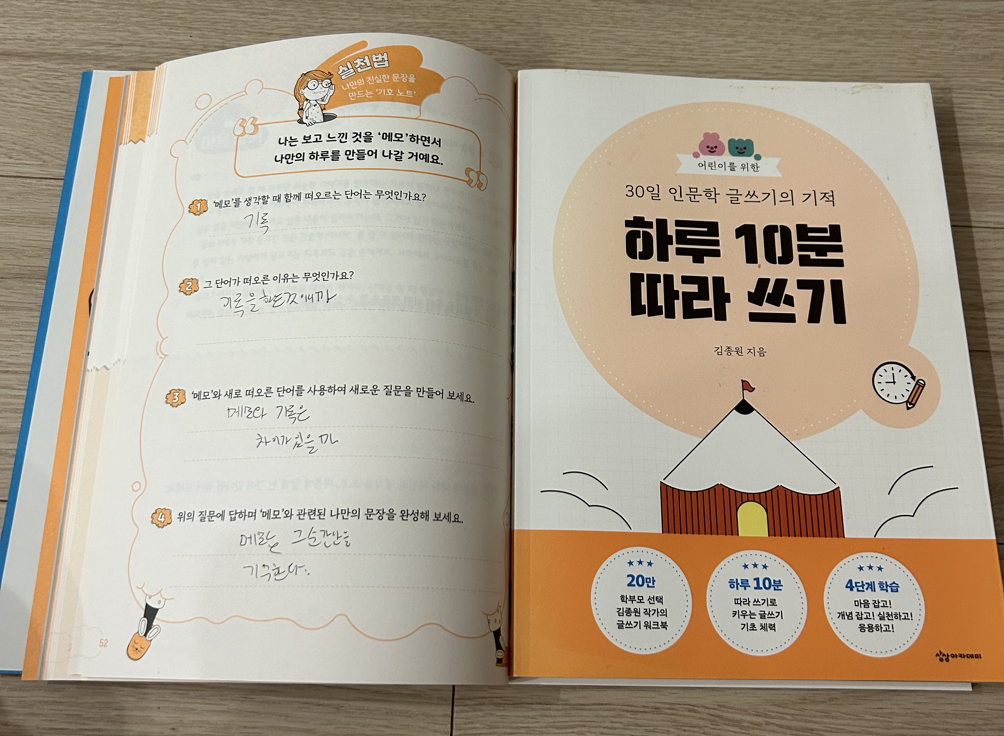 실천법
나만의 진실한 문장을
만드는 '기호 노트'
나는 보고 느낀 것을 '메모'하면서
나만의 하루를 만들어 나갈 거예요.
1 '메모'를 생각할 때 함께 떠오르는 단어는 무엇인가요?
기록
2 그 단어가 떠오른 이유는 무엇인가요?
기록을 하는것이니까
3 '메모'와 새로 떠오른 단어를 사용하여 새로운 질문을 만들어 보세요.
메모와 기록은
차이가 있을까
4 위의 질문에 답하며 '메모'와 관련된 나만의 문장을 완성해 보세요.
메모는 그순간만을
기억한다.
52
어린이를 위한
30일 인문학 글쓰기의 기적
하루 10분
따라 쓰기
김종원 지음
20만
학부모 선택
김종원 작가의
글쓰기 워크북
하루 10분
따라 쓰기로
키우는 글쓰기
기초 체력
4단계 학습
마음 잡고!
개념 잡고! 실천하고!
응용하고!
상상아카데미